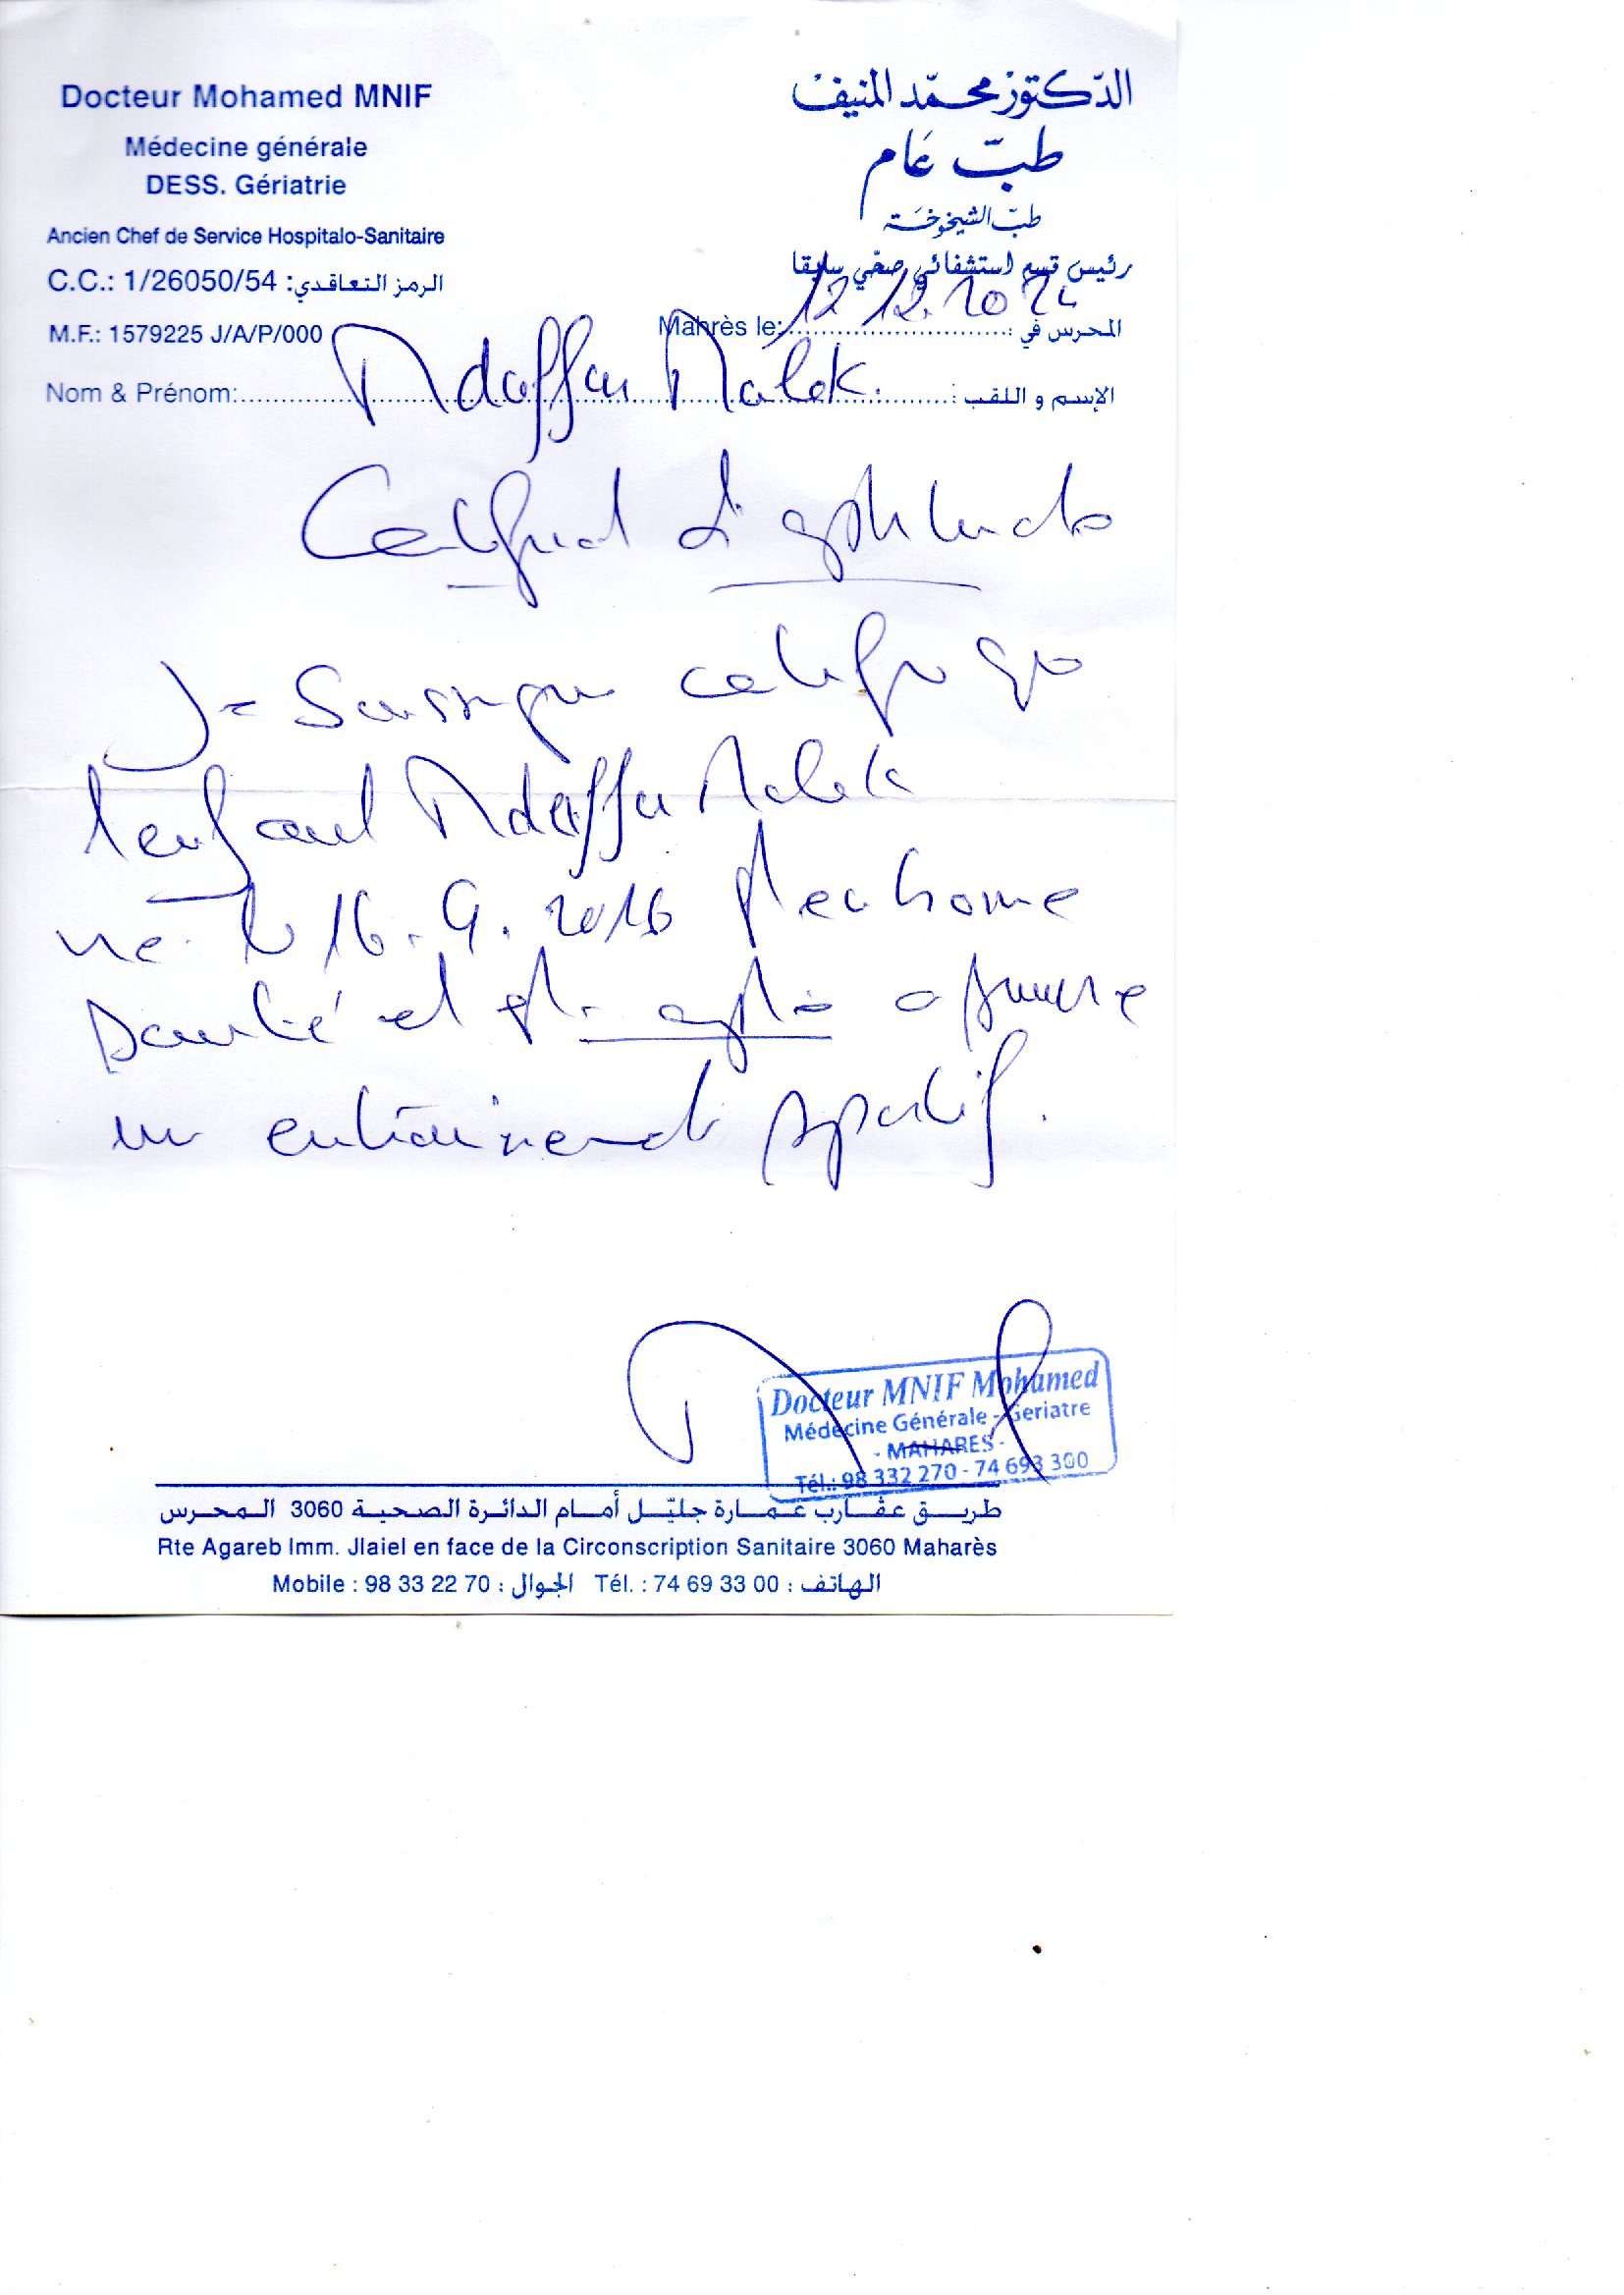 Docteur Mohamed MNIF
Médecine générale
DESS. Gériatrie
Ancien Chef de Service Hospitalo-Sanitaire
C.C.: 1/26050/54 :الرمز التعاقدي
M.F.: 1579225 J/A/P/000
الدّكتور محمّد المنيف
طبّ عَام
طبّ الشيخوخَـة
رئيس قسم استشفائي صحّي سابقا
Mahrès le: 12 12.2024 المحرس في :
Nom & Prénom: Mdaffar Malek. الإسم و اللقب :
Certificat d'aptitude
Je soussigné certifie que
l'enfant Mdaffar Malek
né le 16.9.2016 est en bonne
santé et est apte a suivre
un entrainement sportif.
Docteur MNIF Mohamed
Médecine Générale - Geriatre
- MAHARES -
Tél.: 98 332 270 - 74 693 300
طريق عقارب عمارة جليّل أمام الدائرة الصحية 3060 المحرس
Rte Agareb Imm. Jlaiel en face de la Circonscription Sanitaire 3060 Maharès
Mobile : 98 33 22 70 : الجوال Tél. : 74 69 33 00 : الهاتف